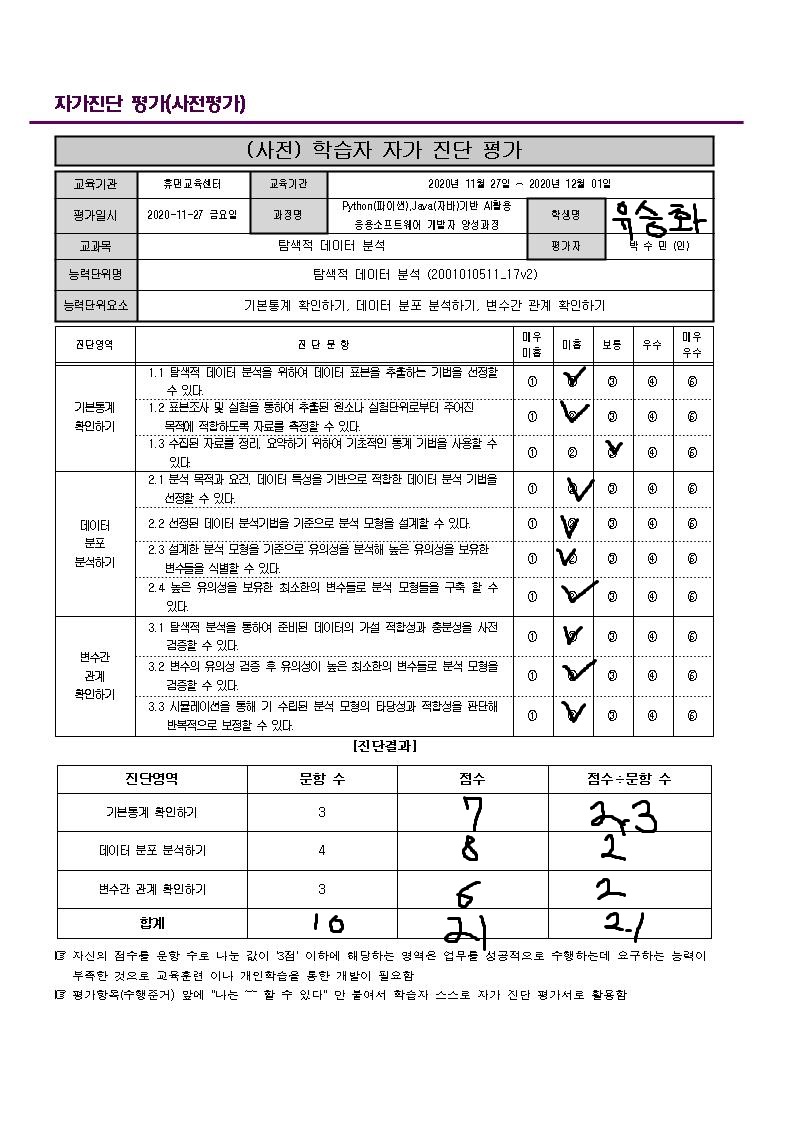 자가진단 평가(사전평가)
(사전) 학습자 자가 진단 평가
교육기관 휴먼교육센터 교육기관 2020년 11월 27일 ~ 2020년 12월 01일
평가일시 2020-11-27 금요일 과정명 Python(파이썬),Java(자바)기반 AI활용 응용소프트웨어 개발자 양성과정 학생명 유승화
교과목 탐색적 데이터 분석 평가자 박 수 민 (인)
능력단위명 탐색적 데이터 분석 (2001010511_17v2)
능력단위요소 기본통계 확인하기, 데이터 분포 분석하기, 변수간 관계 확인하기
진단영역 진 단 문 항 매우 미흡 미흡 보통 우수 매우 우수
기본통계 확인하기
1.1 탐색적 데이터 분석을 위하여 데이터 표본을 추출하는 기법을 선정할
수 있다. ① ② ③ ④ ⑤
1.2 표본조사 및 실험을 통하여 추출된 원소나 실험단위로부터 주어진
목적에 적합하도록 자료를 측정할 수 있다. ① ② ③ ④ ⑤
1.3 수집된 자료를 정리, 요약하기 위하여 기초적인 통계 기법을 사용할 수
있다. ① ② ③ ④ ⑤
데이터 분포 분석하기
2.1 분석 목적과 요건, 데이터 특성을 기반으로 적합한 데이터 분석 기법을
선정할 수 있다. ① ② ③ ④ ⑤
2.2 선정된 데이터 분석기법을 기준으로 분석 모형을 설계할 수 있다. ① ② ③ ④ ⑤
2.3 설계한 분석 모형을 기준으로 유의성을 분석해 높은 유의성을 보유한
변수들을 식별할 수 있다. ① ② ③ ④ ⑤
2.4 높은 유의성을 보유한 최소한의 변수들로 분석 모형들을 구축 할 수
있다. ① ② ③ ④ ⑤
변수간 관계 확인하기
3.1 탐색적 분석을 통하여 준비된 데이터의 가설 적합성과 충분성을 사전
검증할 수 있다. ① ② ③ ④ ⑤
3.2 변수의 유의성 검증 후 유의성이 높은 최소한의 변수들로 분석 모형을
검증할 수 있다. ① ② ③ ④ ⑤
3.3 시뮬레이션을 통해 기 수립된 분석 모형의 타당성과 적합성을 판단해
반복적으로 보정할 수 있다. ① ② ③ ④ ⑤
[진단결과]
진단영역 문항 수 점수 점수÷문항 수
기본통계 확인하기 3 7 2.3
데이터 분포 분석하기 4 8 2
변수간 관계 확인하기 3 6 2
합계 10 21 2.1
☞ 자신의 점수를 문항 수로 나눈 값이 '3점' 이하에 해당하는 영역은 업무를 성공적으로 수행하는데 요구하는 능력이
부족한 것으로 교육훈련 이나 개인학습을 통한 개발이 필요함
☞ 평가항목(수행준거) 앞에 "나는 ~~ 할 수 있다" 만 붙여서 학습자 스스로 자가 진단 평가서로 활용함